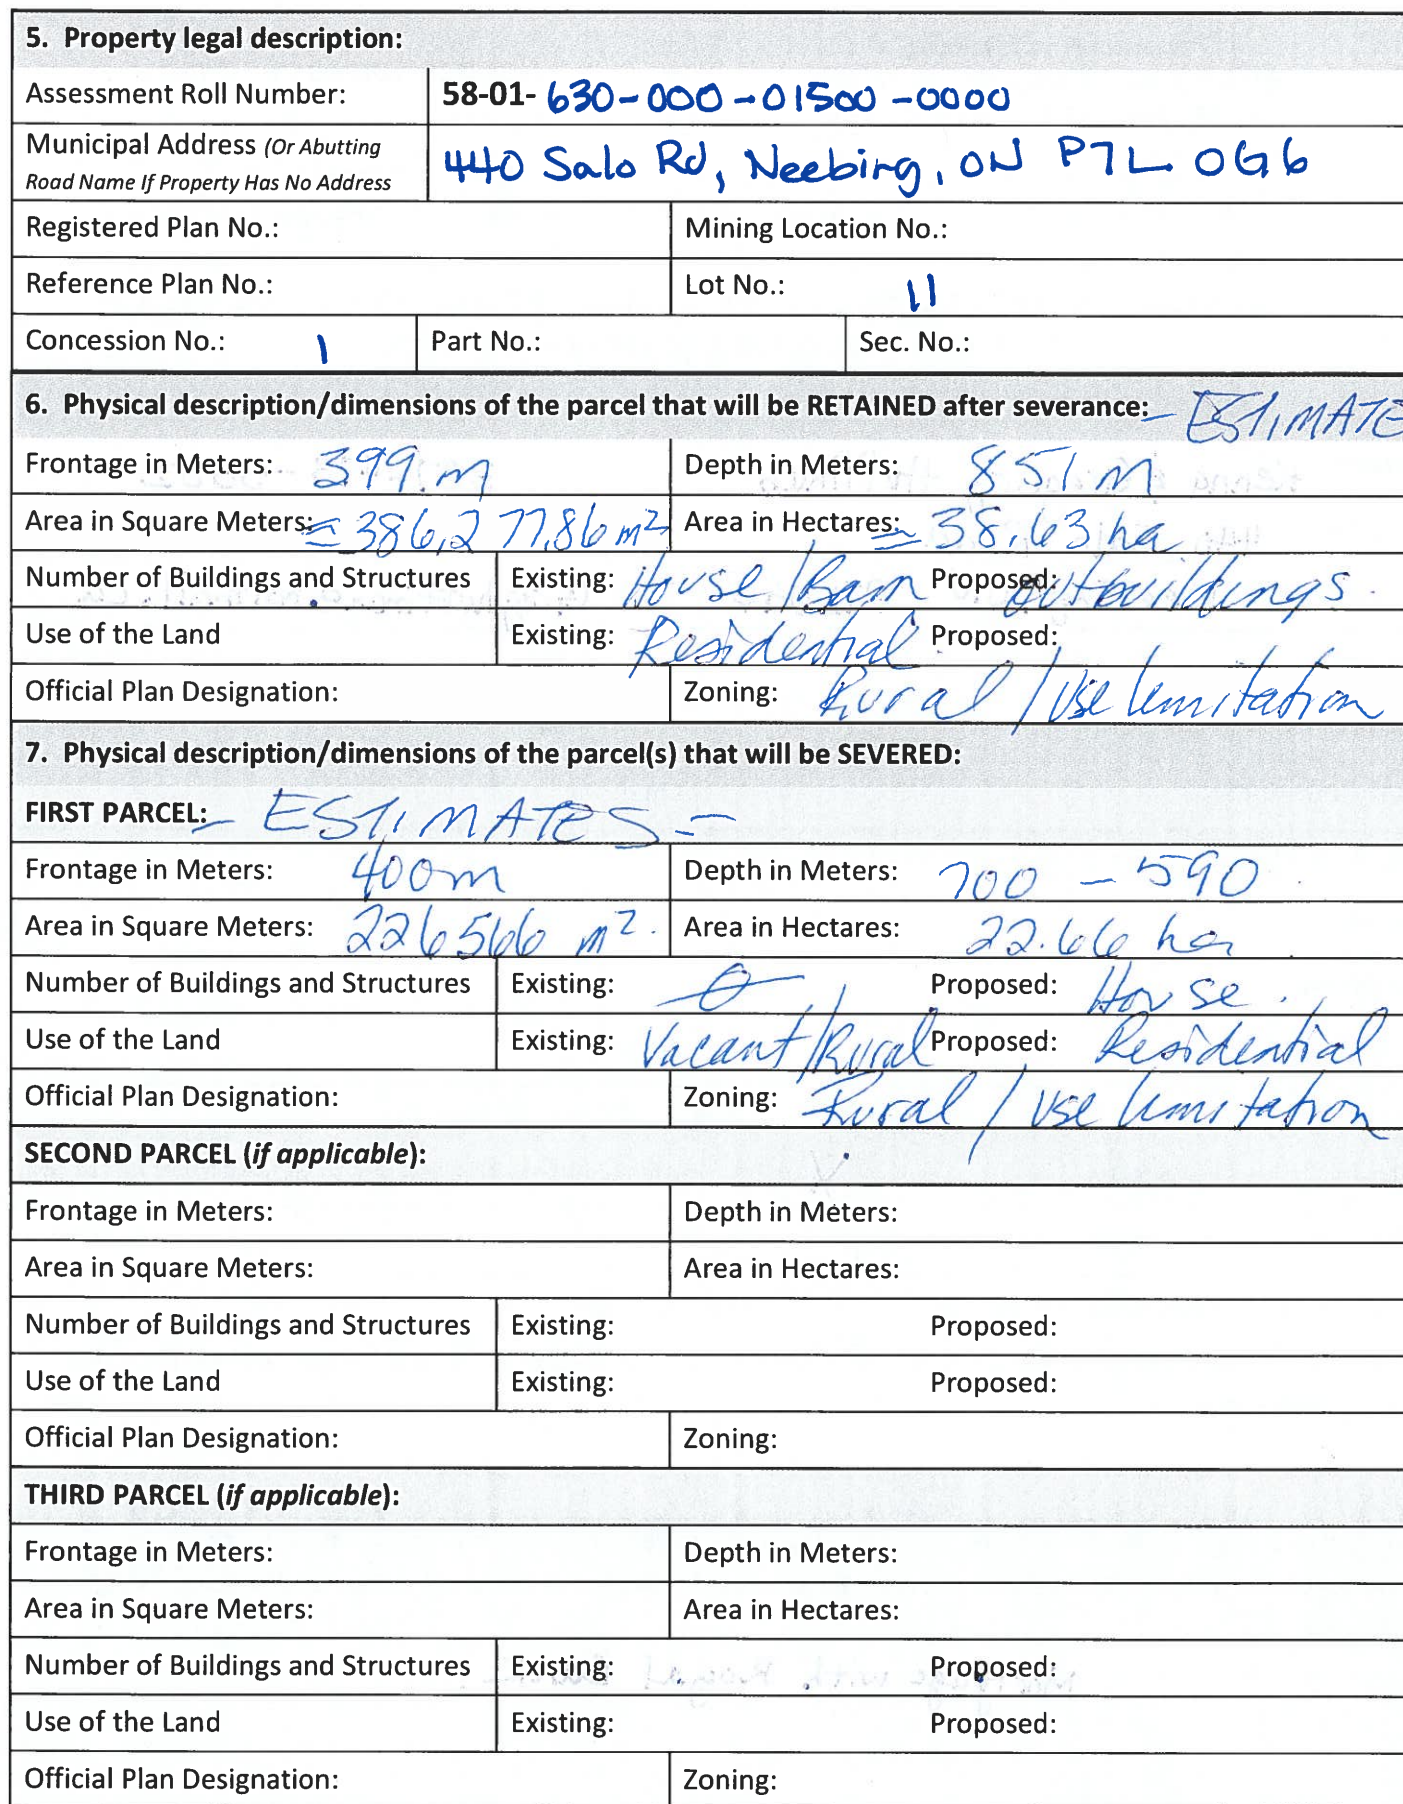 5. Property legal description:
Assessment Roll Number: 58-01- 630-000-01500-0000
Municipal Address (Or Abutting
Road Name If Property Has No Address
440 Salo Rd, Neebing, ON P7L 0G6
Registered Plan No.: Mining Location No.:
Reference Plan No.: Lot No.: 11
Concession No.: 1 Part No.: Sec. No.:
6. Physical description/dimensions of the parcel that will be RETAINED after severance: - ESTIMATE
Frontage in Meters: 399 m Depth in Meters: 851 m
Area in Square Meters: ≈ 386,277.86 m² Area in Hectares: ≈ 38.63 ha
Number of Buildings and Structures Existing: House/Barn Proposed: outbuildings.
Use of the Land Existing: Residential Proposed:
Official Plan Designation: Zoning: Rural / Use limitation
7. Physical description/dimensions of the parcel(s) that will be SEVERED:
FIRST PARCEL: - ESTIMATES -
Frontage in Meters: 400m Depth in Meters: 700 - 590
Area in Square Meters: 226566 m². Area in Hectares: 22.66 ha
Number of Buildings and Structures Existing: 0 Proposed: House.
Use of the Land Existing: Vacant/Rural Proposed: Residential
Official Plan Designation: Zoning: Rural / Use limitation
SECOND PARCEL (if applicable):
Frontage in Meters: Depth in Meters:
Area in Square Meters: Area in Hectares:
Number of Buildings and Structures Existing: Proposed:
Use of the Land Existing: Proposed:
Official Plan Designation: Zoning:
THIRD PARCEL (if applicable):
Frontage in Meters: Depth in Meters:
Area in Square Meters: Area in Hectares:
Number of Buildings and Structures Existing: Proposed:
Use of the Land Existing: Proposed:
Official Plan Designation: Zoning: